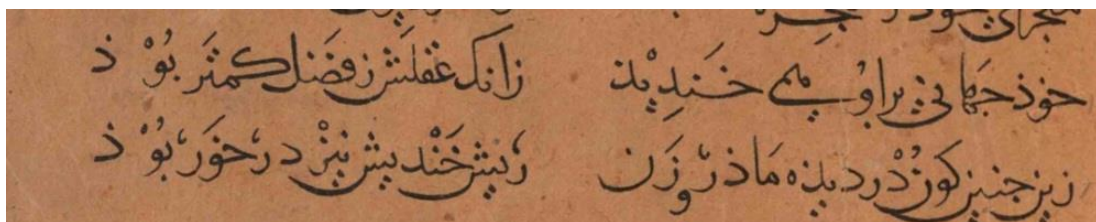 خوذ جهانی بر او می خندیذ زانک عقلش ز فضل کمتر بوذ
زین جنین کون دریذه ماذر و زن ریش خندیش نیز در خور بوذ